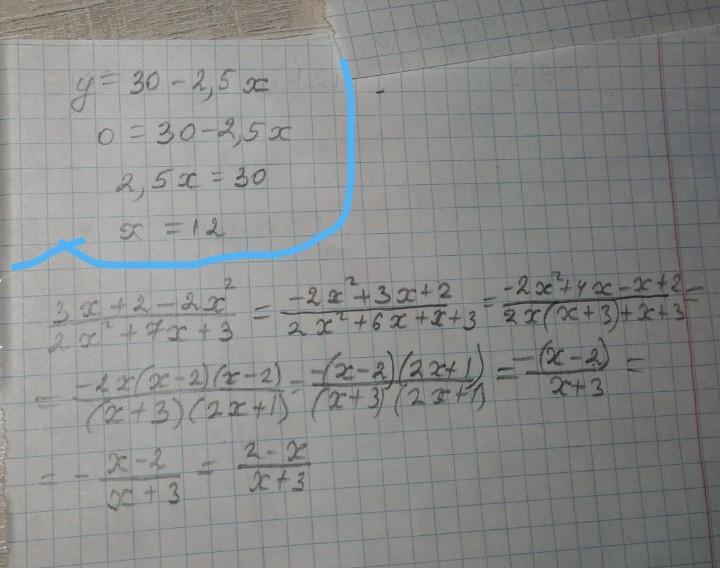 y = 30 - 2,5x
0 = 30 - 2,5x
2,5x = 30
x = 12
(3x + 2 - 2x²)/(2x² + 7x + 3) = (-2x² + 3x + 2)/(2x² + 6x + x + 3) = (-2x² + 4x - x + 2)/(2x(x + 3) + x + 3) =
= (-2x(x - 2)(x - 2))/((x + 3)(2x + 1)) = (-(x - 2)(2x + 1))/((x + 3)(2x + 1)) = (-(x - 2))/(x + 3) =
= - (x - 2)/(x + 3) = (2 - x)/(x + 3)